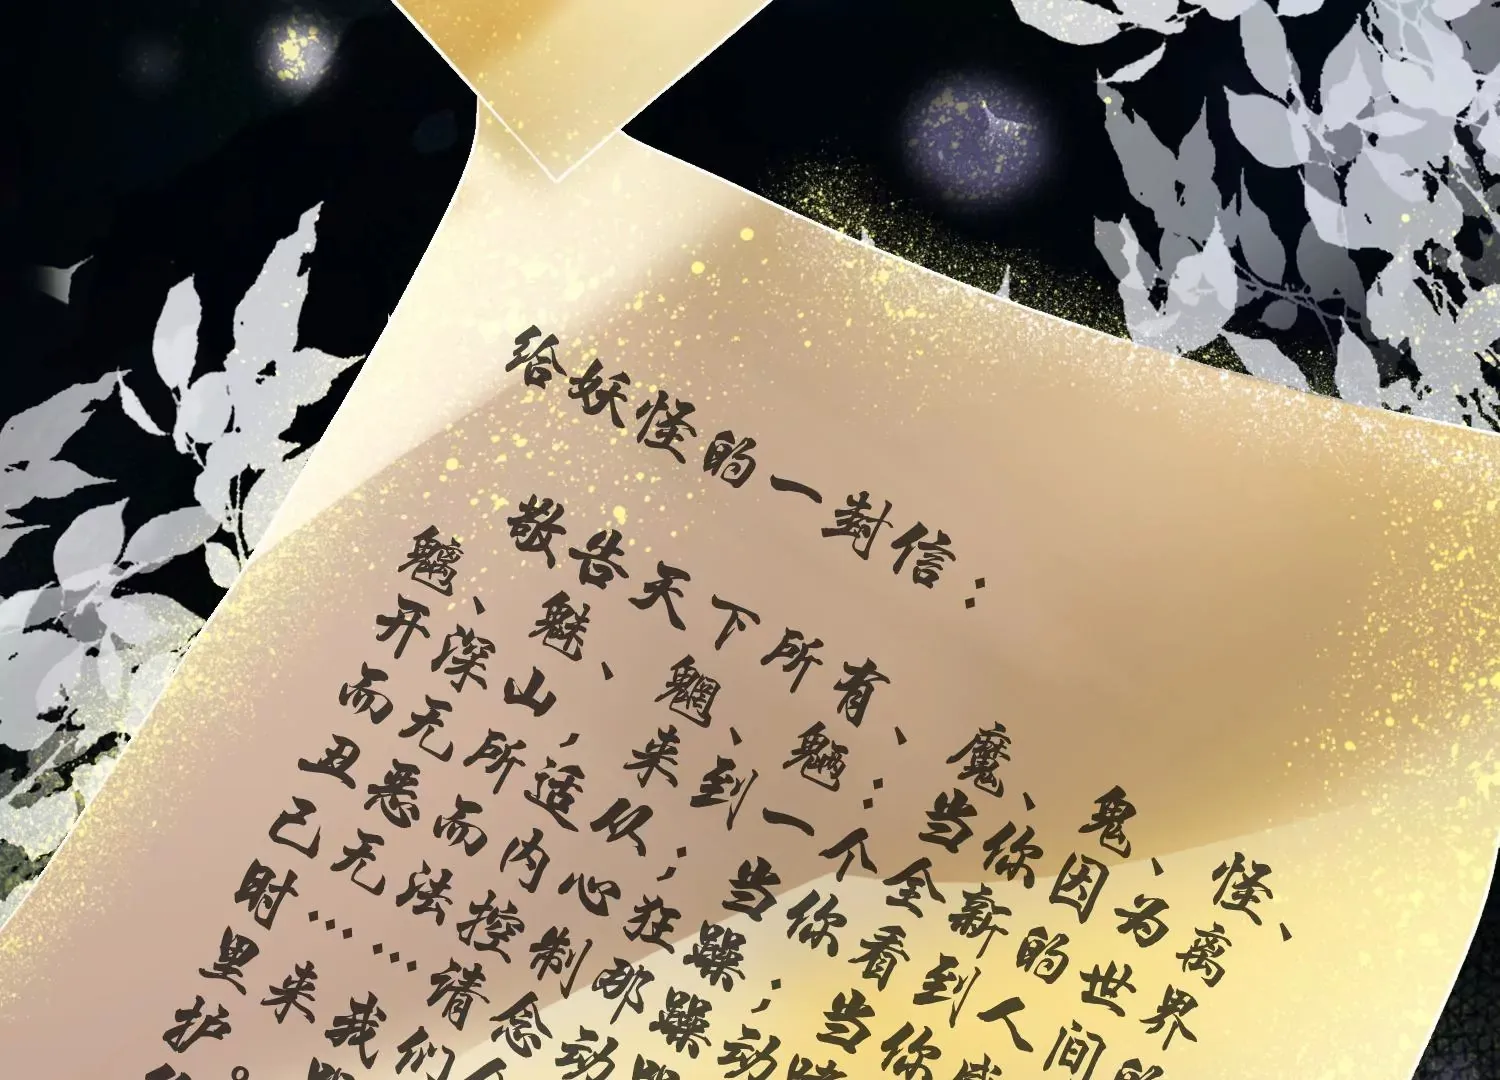 给妖怪的一封信：
敬告天下所有、魔、鬼、怪、
魑、魅、魍、魉：当你因为离
开深山，来到一个全新的世界
而无所适从；当你看到人间的
丑恶而内心狂躁；当你感
己无法控制那躁动
时……请念动
里来我们
护。